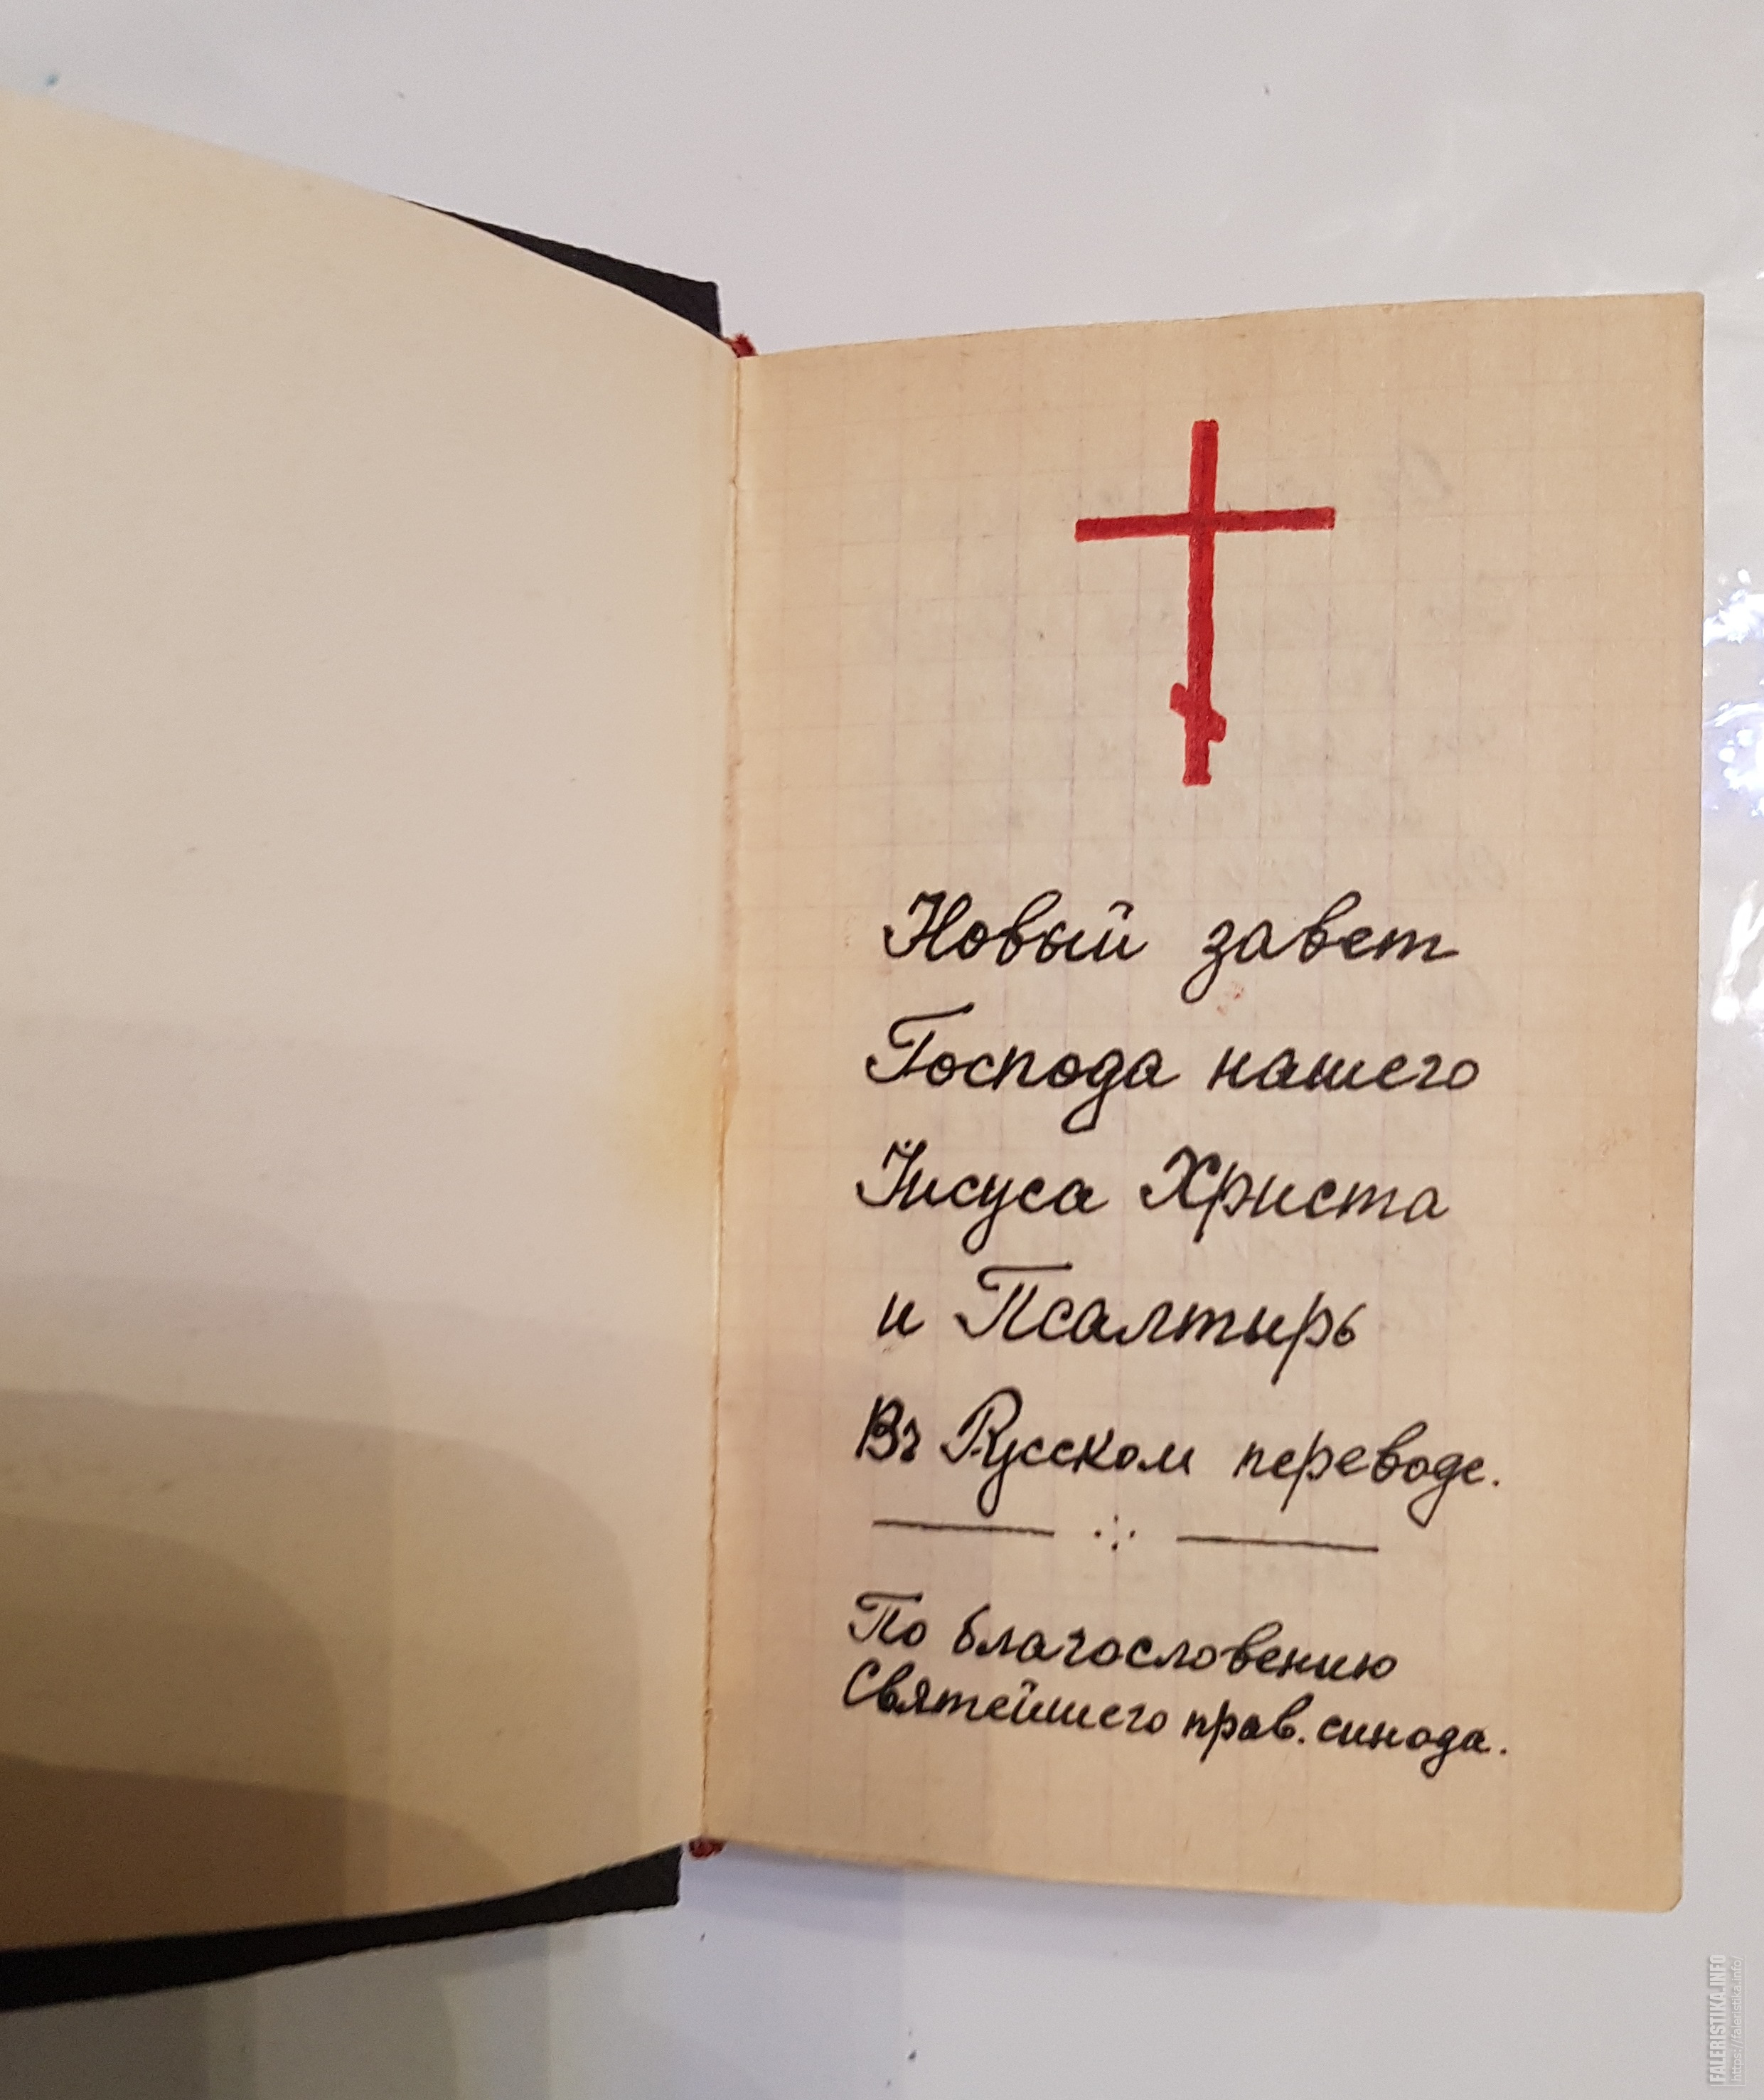 Новый завет
Господа нашего
Їисуса Христа
и Псалтырь
Въ Русском переводе.
По благословению
Святейшего прав. синода.
FALERISTIKA.INFO
https://faleristika.info/